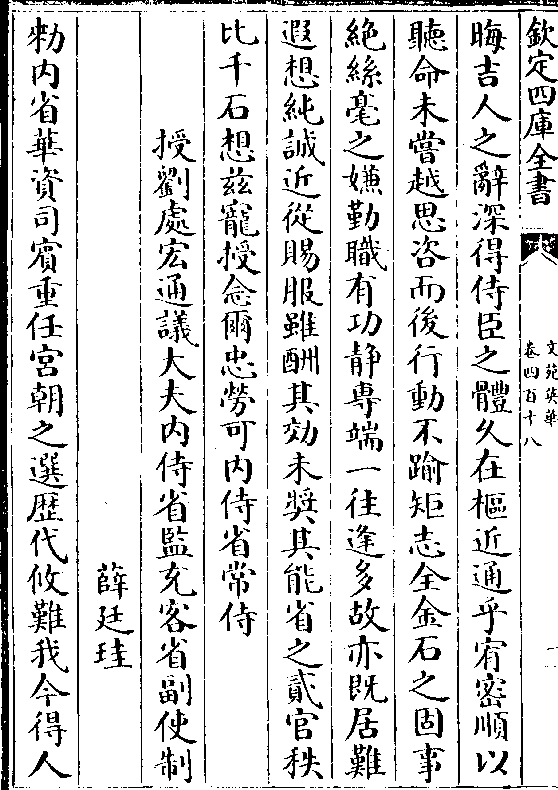 欽定四庫全書
文苑英華
卷四百十八
晦吉人之辭深得侍臣之體久在樞近通乎宥密順以
聽命未嘗越思咨而後行動不踰矩志全金石之固事
絶絲毫之嫌勤職有功静專端一往逢多故亦既居難
遐想純誠近從賜服雖酬其効未奬其能省之貳官秩
比千石想兹寵授念爾忠勞可内侍省常侍
授劉處宏通議大夫内侍省監充客省副使制
薛廷珪
勑内省華資司賔重任宮朝之選歴代攸難我今得人